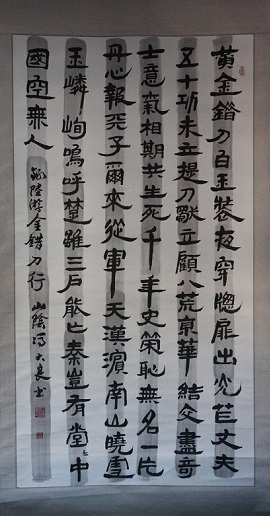 黃金錯刀白玉裝夜穿窗扉出光芒丈夫
五十功未立提刀獨立顧八荒京華結交盡奇
士意氣相期共生死千年史策恥無名一片
丹心報天子爾來從軍天漢濱南山曉雪
玉嶙峋嗚呼楚雖三戶能亡秦豈有堂々中
國空無人
陸游金錯刀行 山陰馮大良書